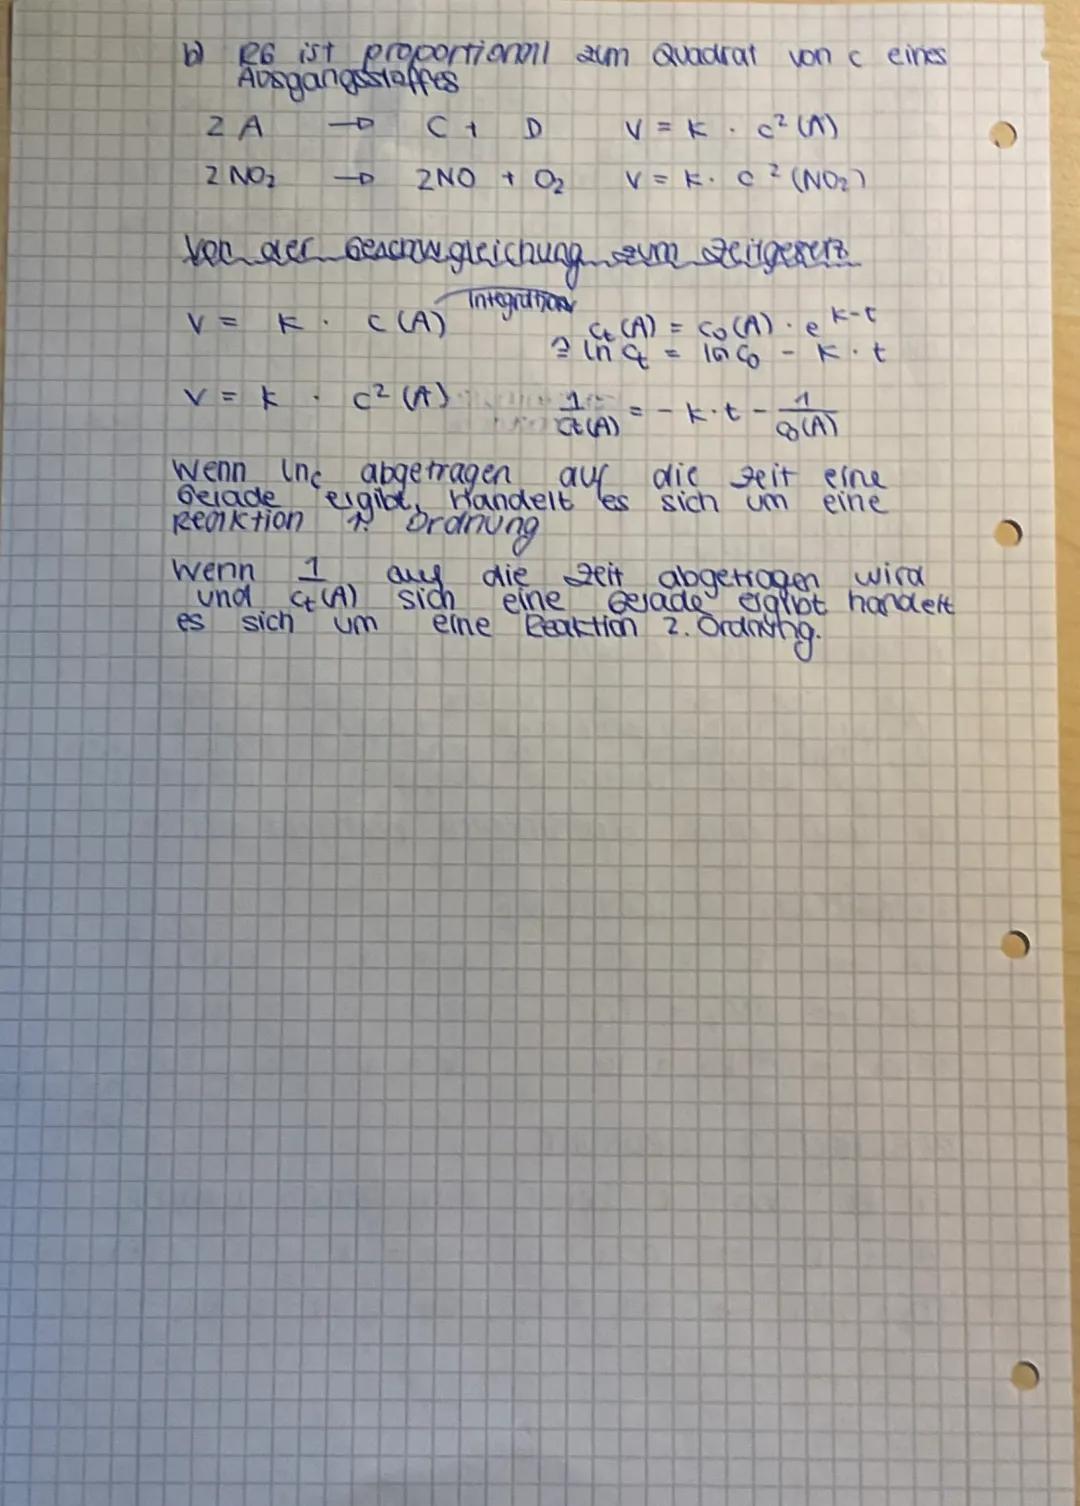 b) RG ist proportional zum Quadrat von c eines
Ausgangsstoffes
2 A → C + D V = K · c² (A)
2 NO₂ → 2NO + O₂ V = K · c² (NO₂)
Von der Geschw.gleichung zum Zeitgesetz
V = K · c (A) Integration cₜ (A) = c₀ (A) · e^(K-t)
≙ ln cₜ = ln c₀ - K · t
V = K · c² (A) 1/cₜ(A) = - K · t - 1/c₀(A)
Wenn lnc abgetragen auf die Zeit eine
Gerade ergibt, handelt es sich um eine
Reaktion 1. Ordnung
Wenn 1 auf die Zeit abgetragen wird
und cₜ (A) sich eine Gerade ergibt handelt
es sich um eine Reaktion 2. Ordnung.